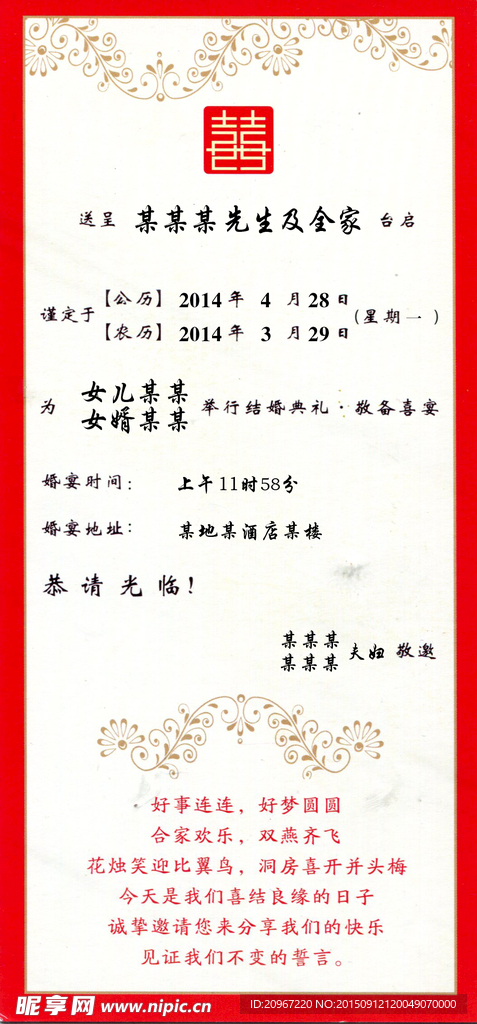 囍
送呈 某某某先生及全家 台启
谨定于 【公历】 2014 年 4 月 28 日 (星期一)
【农历】 2014 年 3 月 29 日
为 女儿某某 举行结婚典礼·敬备喜宴
女婿某某
婚宴时间: 上午11时58分
婚宴地址: 某地某酒店某楼
恭请光临!
某某某 夫妇 敬邀
某某某
好事连连，好梦圆圆
合家欢乐，双燕齐飞
花烛笑迎比翼鸟，洞房喜开并头梅
今天是我们喜结良缘的日子
诚挚邀请您来分享我们的快乐
见证我们不变的誓言。
昵享网 www.nipic.cn
ID:20967220 NO:20150912120049070000